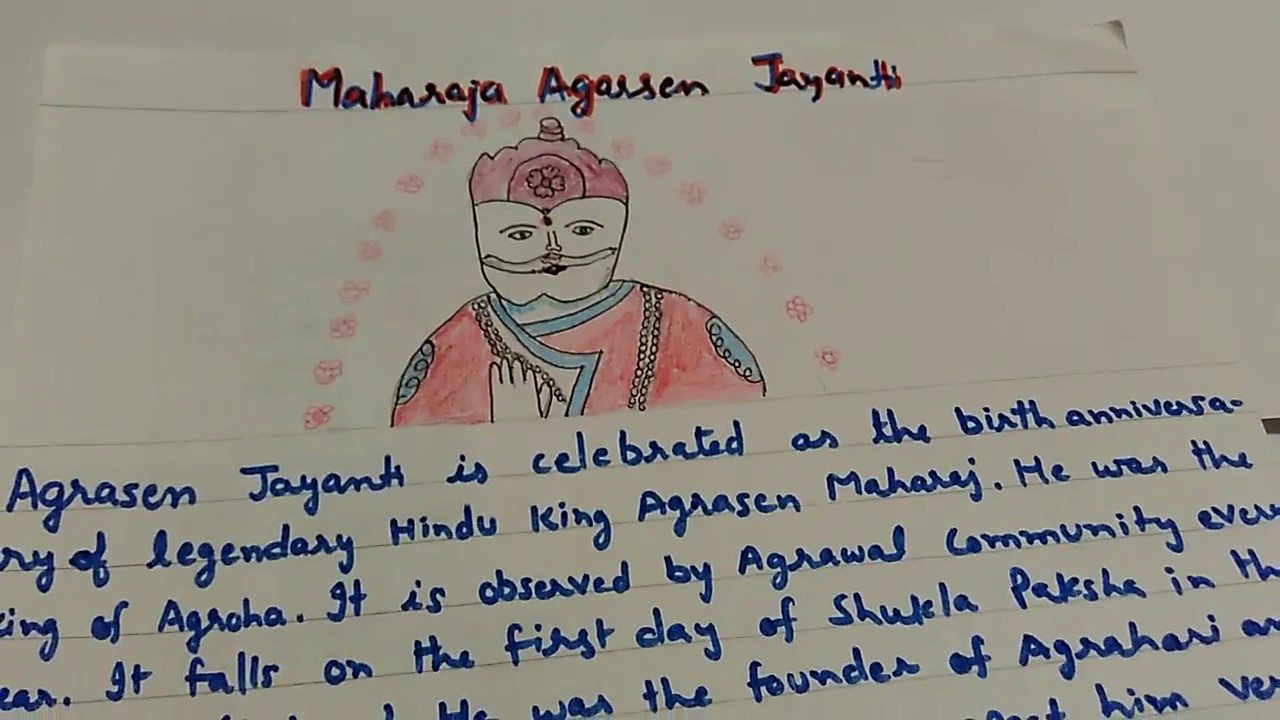 Maharaja Agarsen Jayanti
Agrasen Jayanti is celebrated as the birth anniversa-
ry of legendary Hindu King Agrasen Maharaj. He was the
of Agroha. It is observed by Agrawal Community
It falls on the first day of Shukla Paksha in
He was the founder of Agrahari
him